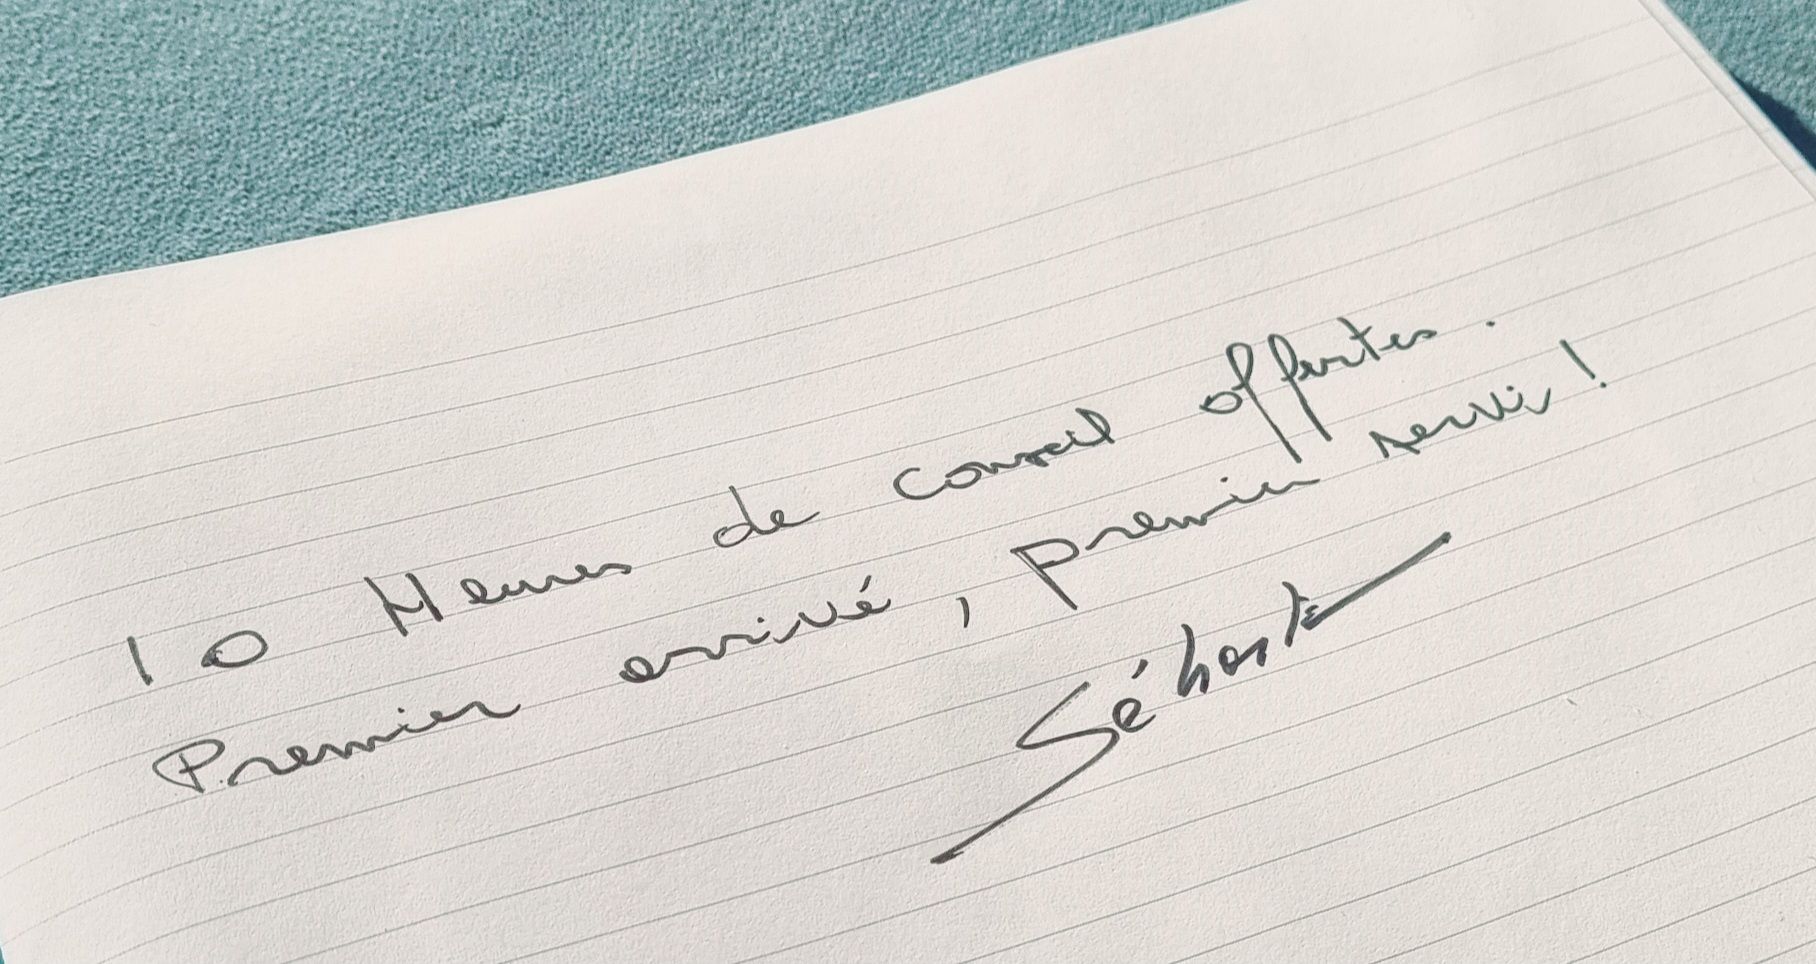 10 Heures de conseil offertes.
Premier arrivé, premier servi !